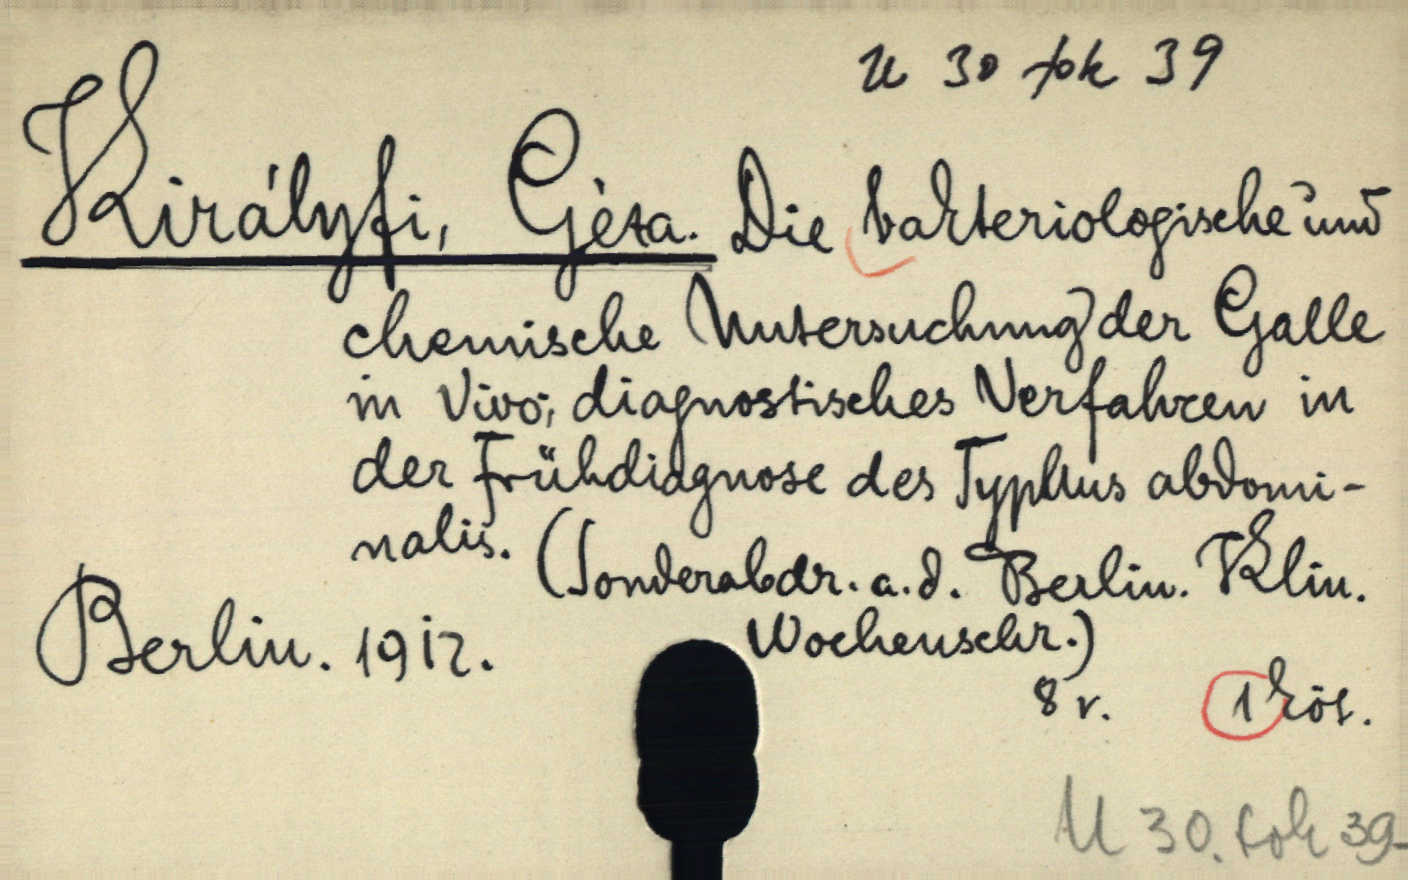 U 30 fok 39
Királyfi, Géza. Die bakteriologische und
chemische Untersuchung der Galle
in Vivo; diagnostisches Verfahren in
der Frühdiagnose des Typhus abdomi-
nalis. (Sonderabdr. a. d. Berlin. Klin.
Wochenschr.)
Berlin. 1912.
8 r. 1 köt.
U 30. fok 39